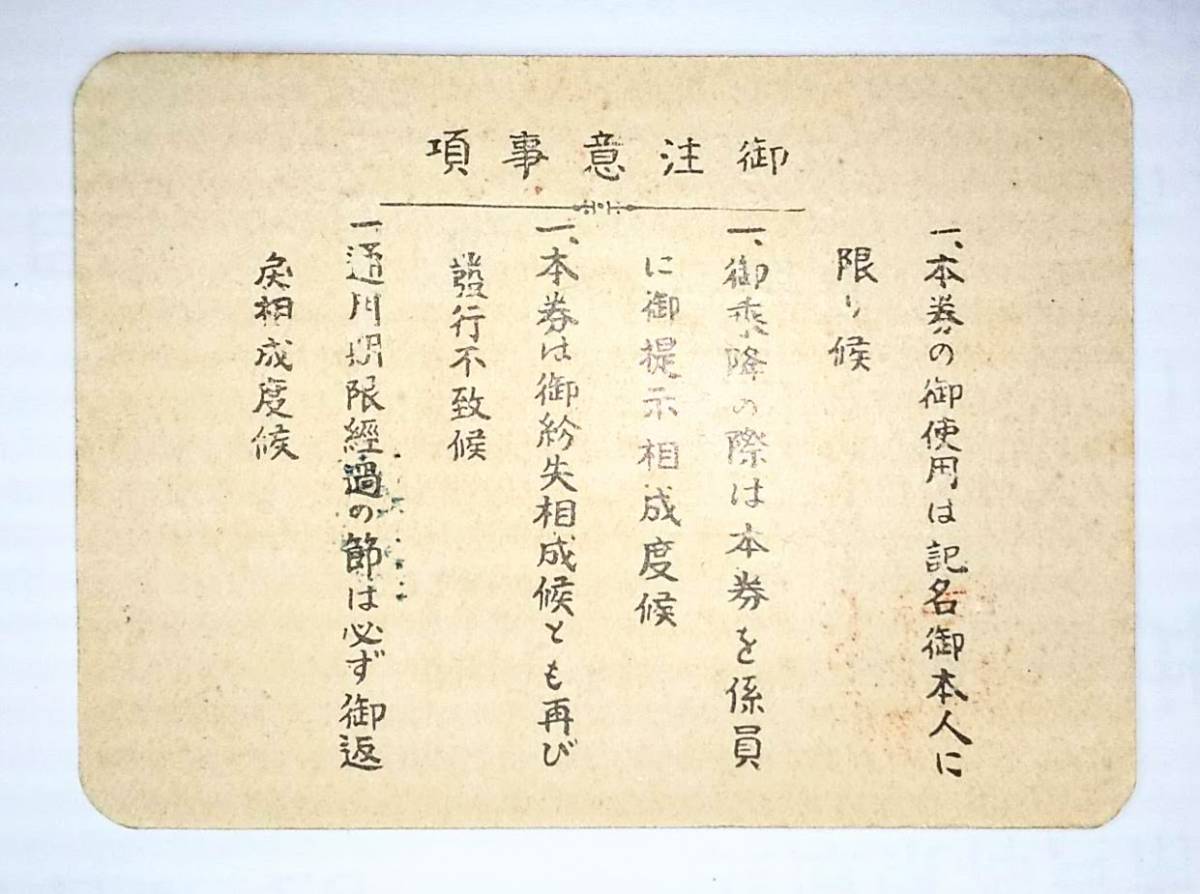 御注意事項
一、本券の御使用は記名御本人に
限り候
一、御乗降の際は本券を係員
に御提示相成度候
一、本券は御紛失相成候とも再び
發行不致候
一通用期限經過の節は必ず御返
戾相成度候